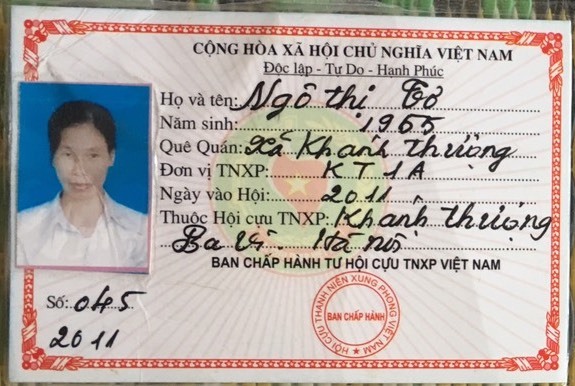 CỘNG HÒA XÃ HỘI CHỦ NGHĨA VIỆT NAM
Độc lập - Tự Do - Hanh Phúc
Họ và tên: Ngô thị Tơ
Năm sinh: 1955
Quê Quán: Xã Khanh thượng
Đơn vị TNXP: KT1A
Ngày vào Hội: 2011
Thuộc Hội cựu TNXP: Khanh thượng
Ba Vì - Hà nội
BAN CHẤP HÀNH TƯ HỘI CỰU TNXP VIỆT NAM
Số: 045
2011
HỘI CỰU THANH NIÊN XUNG PHONG VIỆT NAM
BAN CHẤP HÀNH